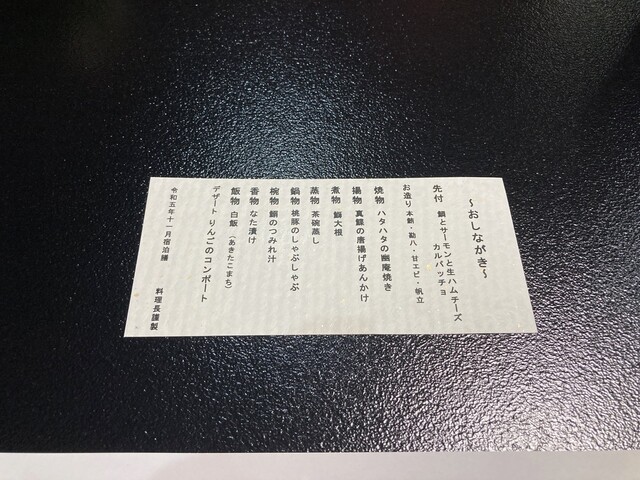 ～おしながき～
先付　鯛とサーモンと生ハムチーズ
カルパッチョ
お造り　本鮪・勘八・甘エビ・帆立
焼物　ハタハタの幽庵焼き
揚物　真鱈の唐揚げあんかけ
煮物　鰤大根
蒸物　茶碗蒸し
鍋物　桃豚のしゃぶしゃぶ
椀物　鰯のつみれ汁
香物　なた漬け
飯物　白飯（あきたこまち）
デザート　りんごのコンポート
令和五年十一月宿泊膳
料理長謹製